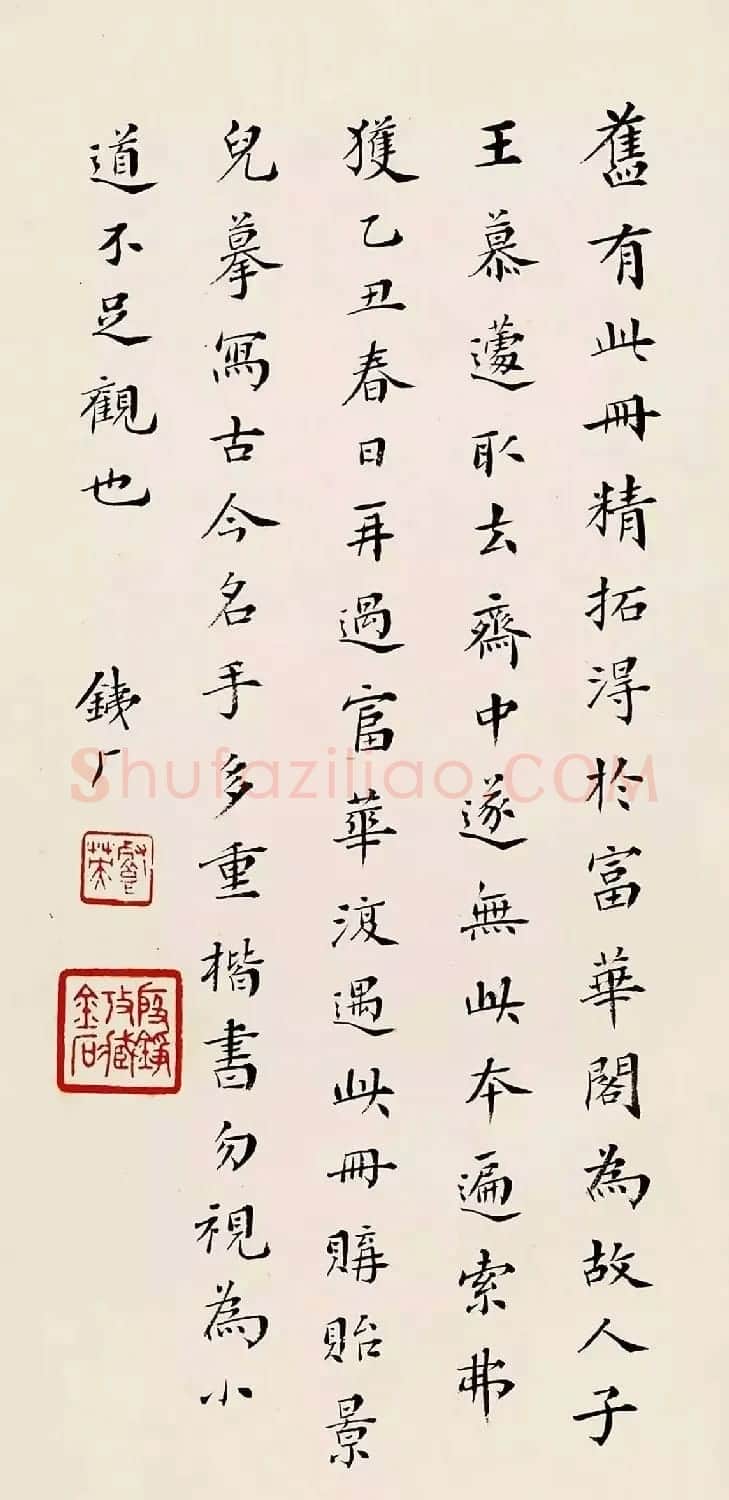 舊有此冊精拓淂於富華閣為故人子
王慕蘧取去齋中遂無此本遍索弗
獲乙丑春日再過富華復遇此冊購貽景
兒摹寫古今名手多重楷書勿視為小
道不足觀也
鐵厂
Shufaziliao.COM